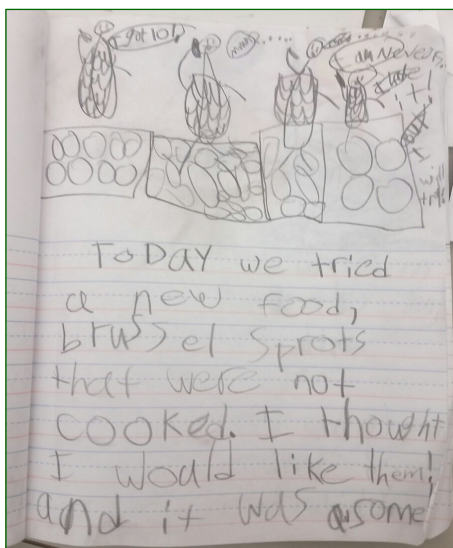 I got 10!
TODAY we tried
a new food,
brussel sprots
that were not
cooked. I thought
I would like them!
and it was asome